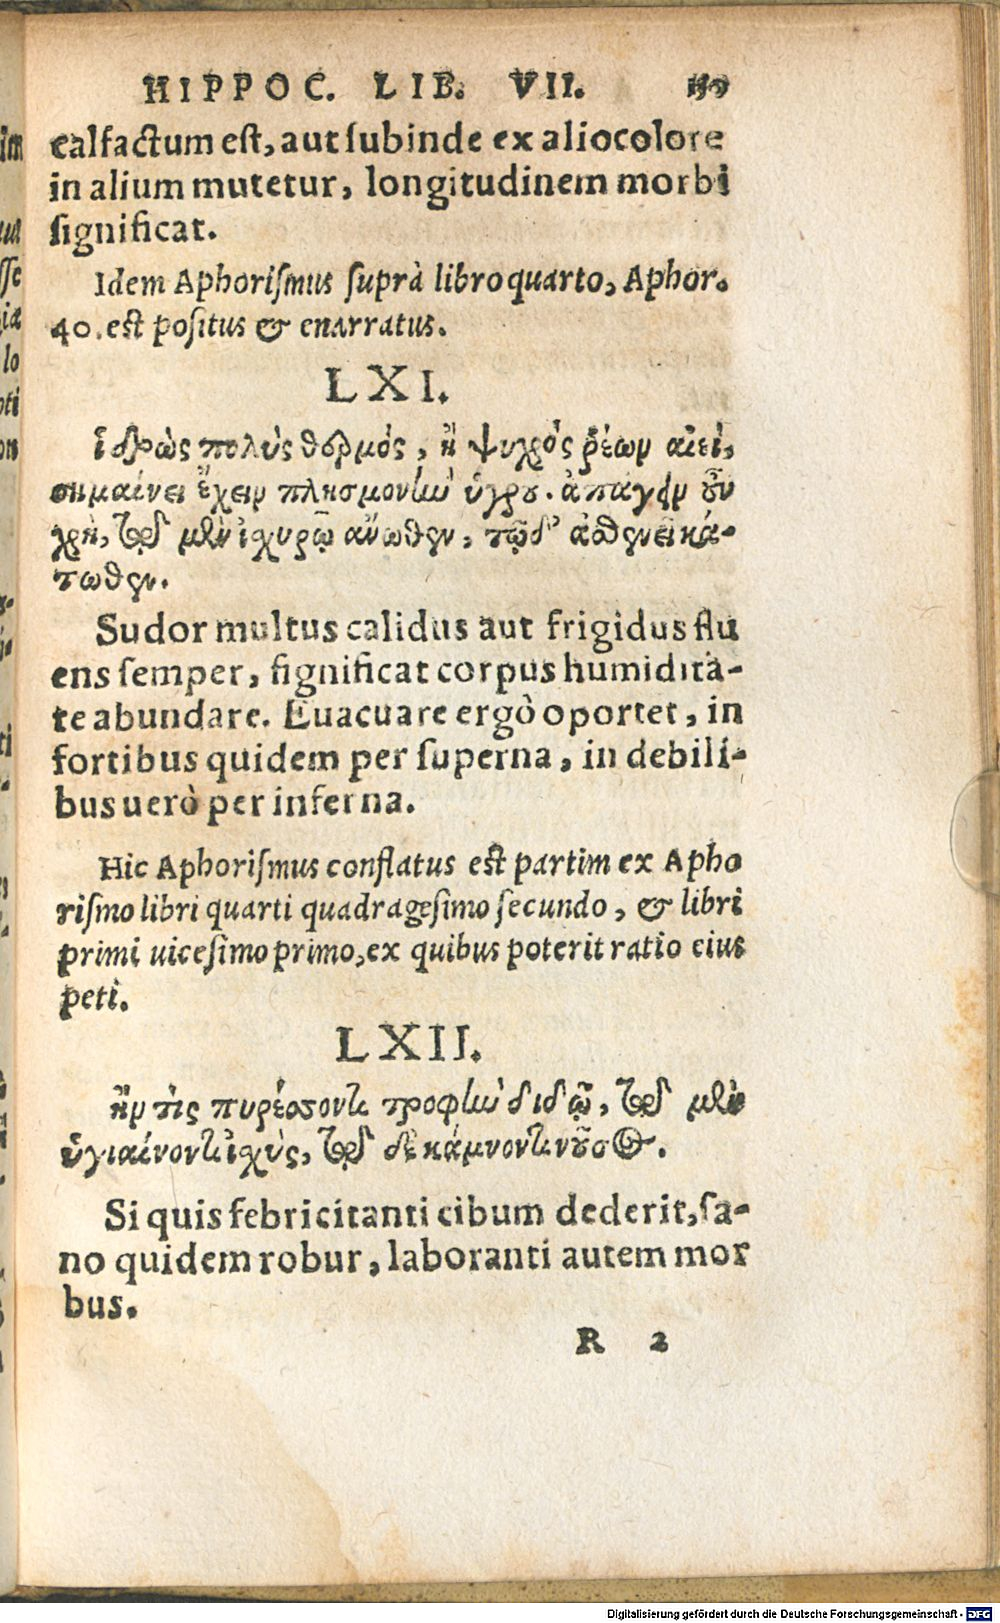 HIPPOC. LIB. VII.
calfactum est, aut subinde ex alio colore
in alium mutetur, longitudinem morbi
significat.
Idem Aphorismus suprà libro quarto, Aphor.
40. est positus & enarratus.
LXI.
ἱδρὼς πολὺς θερμὸς, ἢ ψυχρὸς ῥέων αἰεὶ,
σημαίνει ἔχειν πλησμονὴν ὑγροῦ. ἀπάγειν οὖν
χρὴ, τῷ μὲν ἰσχυρῷ ἄνωθεν, τῷ δ' ἀσθενεῖ κά-
τωθεν.
Sudor multus calidus aut frigidus flu
ens semper, significat corpus humidita-
te abundare. Euacuare ergò oportet, in
fortibus quidem per superna, in debili-
bus uerò per inferna.
Hic Aphorismus conflatus est partim ex Apho
rismo libri quarti quadragesimo secundo, & libri
primi uicesimo primo, ex quibus poterit ratio eius
peti.
LXII.
ἤν τὶς πυρέσσοντι τροφὴν διδῷ, τῷ μὲν
ὑγιαίνοντι ἰσχὺς, τῷ δὲ κάμνοντι νοῦσος.
Si quis febricitanti cibum dederit, sa-
no quidem robur, laboranti autem mor
bus.
R 2
Digitalisierung gefördert durch die Deutsche Forschungsgemeinschaft - DFG